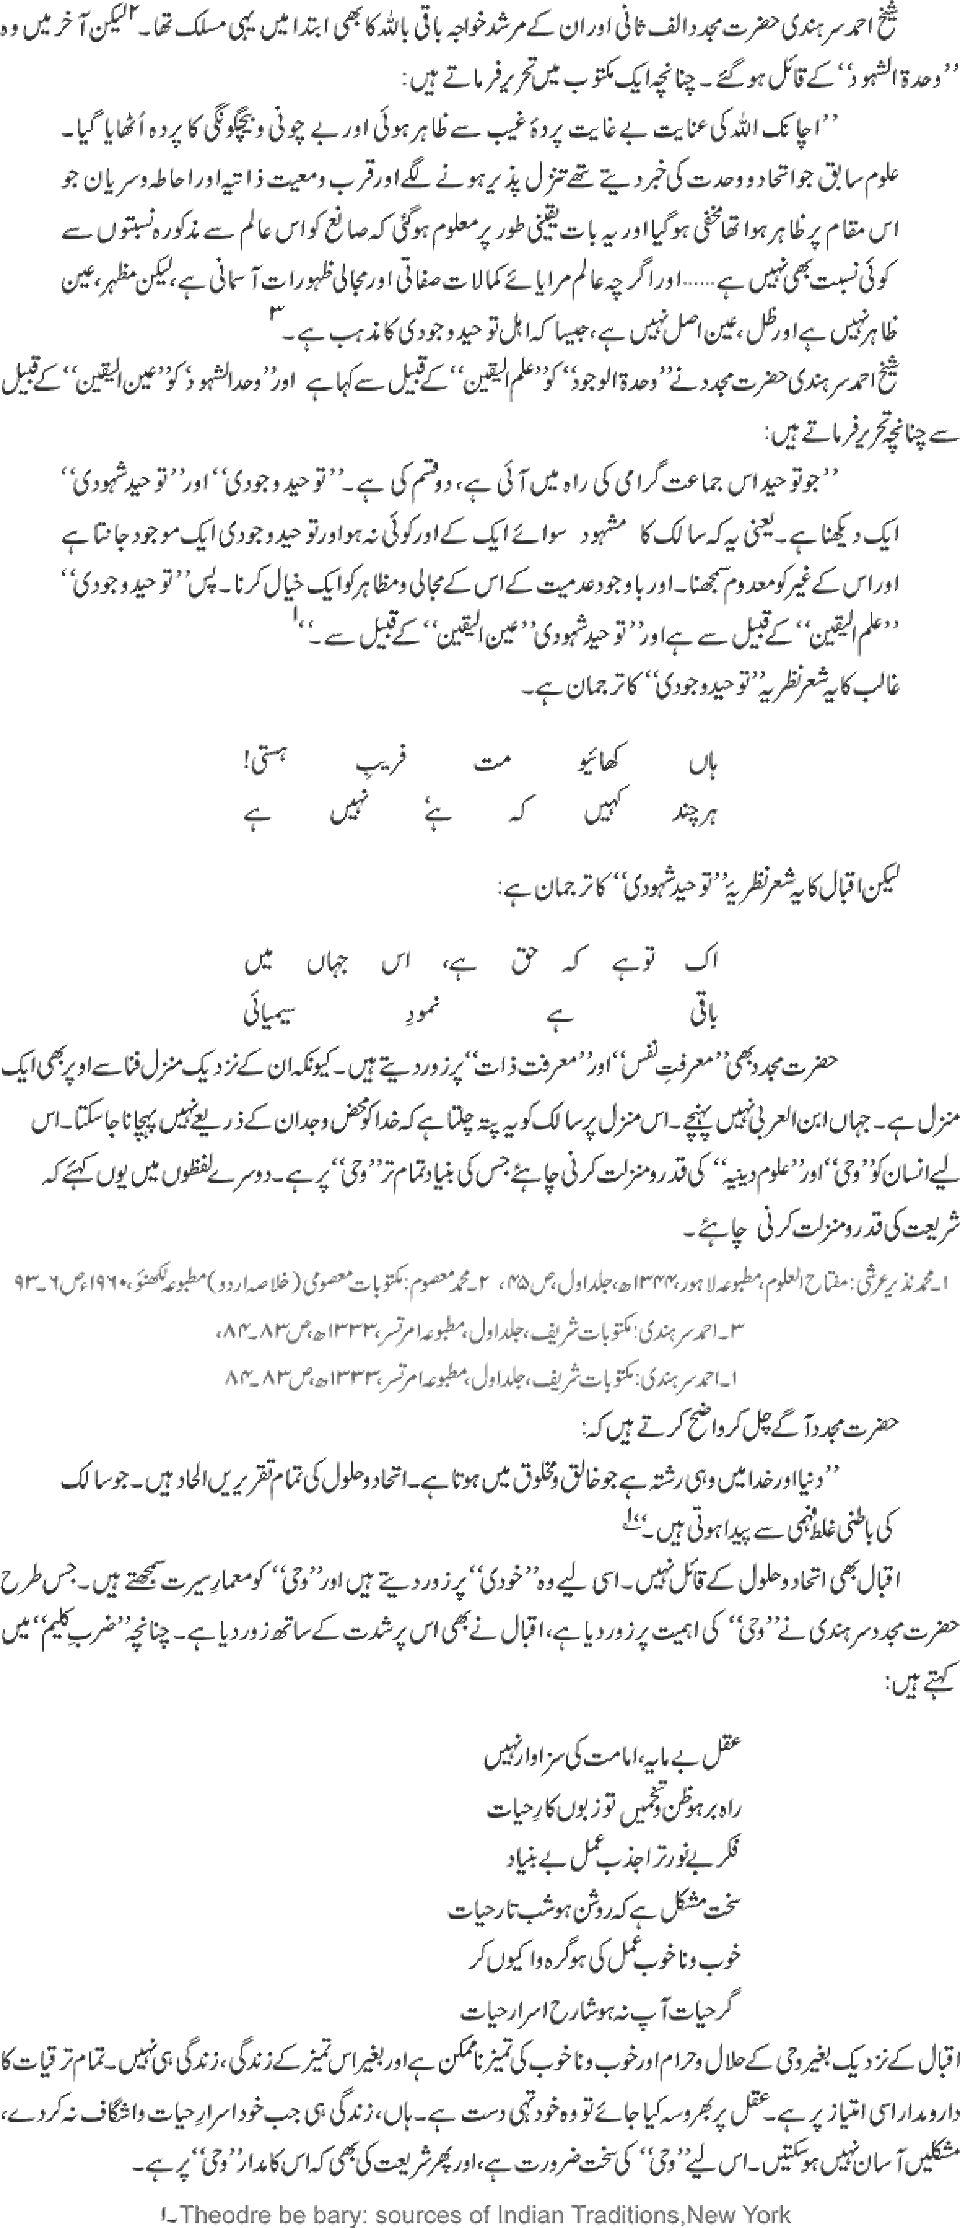 شیخ احمد سرہندی حضرت مجدد الف ثانی اور ان کے مرشد خواجہ باقی باللہ کا بھی ابتدا میں یہی مسلک تھا۔۲ لیکن آخر میں وہ
’’وحدۃ الشہود‘‘ کے قائل ہو گئے۔ چنانچہ ایک مکتوب میں تحریر فرماتے ہیں:
’’اچانک اللہ کی عنایت بے غایت پردۂ غیب سے ظاہر ہوئی اور بے چونی و بیچگونگی کا پردہ اُٹھایا گیا۔
علوم سابق جو اتحاد و وحدت کی خبر دیتے تھے تنزل پذیر ہونے لگے اور قرب و معیت ذاتیہ اور احاطہ و سریان جو
اس مقام پر ظاہر ہوا تھا مخفی ہو گیا اور یہ بات یقینی طور پر معلوم ہو گئی کہ صانع کو اس عالم سے مذکورہ نسبتوں سے
کوئی نسبت بھی نہیں ہے……اور اگرچہ عالم مرایائے کمالات صفاتی اور مجالی ظہورات آسمانی ہے، لیکن مظہر، عین
ظاہر نہیں ہے اور ظل، عین اصل نہیں ہے، جیسا کہ اہل توحید وجودی کا مذہب ہے۔۳
شیخ احمد سرہندی حضرت مجدد نے ’’وحدۃ الوجود‘‘ کو ’’علم الیقین‘‘ کے قبیل سے کہا ہے اور ’’وحد الشہود‘ کو ’’عین الیقین‘‘ کے قبیل
سے چنانچہ تحریر فرماتے ہیں:
’’جو توحید اس جماعت گرامی کی راہ میں آئی ہے، دو قسم کی ہے۔ ’’توحید وجودی‘‘ اور ’’توحید شہودی‘‘
ایک دیکھنا ہے۔ یعنی یہ کہ سالک کا مشہود سوائے ایک کے اور کوئی نہ ہو اور توحید وجودی ایک موجود جانتا ہے
اور اس کے غیر کو معدوم سمجھنا۔ اور باوجود عدمیت کے اس کے مجالی و مظاہر کو ایک خیال کرنا۔ پس ’’توحید وجودی‘‘
’’علم الیقین‘‘ کے قبیل سے ہے اور ’’توحید شہودی’’عین الیقین‘‘ کے قبیل سے ۔‘‘۱
غالب کا یہ شعر نظریہ ’’توحید وجودی‘‘ کا ترجمان ہے۔
ہاں کھائیو مت فریبِ ہستی!
ہرچند کہیں کہ ’ہے‘ نہیں ہے
لیکن اقبال کا یہ شعر نظریۂ ’’توحید شہودی‘‘ کا ترجمان ہے:
اک تو ہے کہ حق ہے، اس جہاں میں
باقی ہے نمودِ سیمیائی
حضرت مجدد بھی ’’معرفتِ نفس‘‘ اور ’’معرفت ذات‘‘ پر زور دیتے ہیں۔ کیونکہ ان کے نزدیک منزل فنا سے اوپر بھی ایک
منزل ہے۔ جہاں ابن العربی نہیں پہنچے۔ اس منزل پر سالک کو یہ پتہ چلتا ہے کہ خدا کو محض وجدان کے ذریعے نہیں پہچانا جا سکتا۔ اس
لیے انسان کو ’’وحی‘‘ اور ’’علوم دینیہ‘‘ کی قدر و منزلت کرنی چاہئے جس کی بنیاد تمام تر ’’وحی‘‘ پر ہے۔ دوسرے لفظوں میں یوں کہئے کہ
شریعت کی قدر و منزلت کرنی چاہئے۔
۱۔ محمد نذیر عرشی: مفتاح العلوم، مطبوعہ لاہور، ۱۳۴۴ھ، جلد اول، ص ۴۵، ۲۔ محمد معصوم: مکتوبات معصومی (خلاصہ اردو) مطبوعہ لکھنؤ، ۱۹۶۰ء ص ۶۔۹۳
۳۔ احمد سرہندی: مکتوبات شریف، جلد اول، مطبوعہ امرتسر، ۱۳۳۳ھ، ص ۸۳۔۸۴،
۱۔ احمد سرہندی: مکتوبات شریف، جلد اول، مطبوعہ امرتسر، ۱۳۳۳ھ، ص ۸۳۔۸۴
حضرت مجدد آگے چل کر واضح کرتے ہیں کہ:
’’دنیا اور خدا میں وہی رشتہ ہے جو خالق و مخلوق میں ہوتا ہے۔ اتحاد و حلول کی تمام تقریریں الحاد ہیں۔ جو سالک
کی باطنی غلط فہمی سے پیدا ہوتی ہیں۔‘‘۱
اقبال بھی اتحاد و حلول کے قائل نہیں۔ اسی لیے وہ ’’خودی‘‘ پر زور دیتے ہیں اور ’’وحی‘‘ کو معمارِ سیرت سمجھتے ہیں۔ جس طرح
حضرت مجدد سرہندی نے ’’وحی‘‘ کی اہمیت پر زور دیا ہے، اقبال نے بھی اس پر شدت کے ساتھ زور دیا ہے۔ چنانچہ ’’ضربِ کلیم‘‘ میں
کہتے ہیں:
عقل بے مایہ، امامت کی سزاوار نہیں
راہ بر ہو ظن و تخمیں تو زبوں کارِ حیات
فکر بے نور ترا جذب عمل بے بنیاد
سخت مشکل ہے کہ روشن ہو شب تار حیات
خوب و نا خوب عمل کی ہو گرہ وا کیوں کر
گر حیات آپ نہ ہو شارحِ اسرار حیات
اقبال کے نزدیک بغیر وحی کے حلال و حرام اور خوب و نا خوب کی تمیز ناممکن ہے اور بغیر اس تمیز کے زندگی، زندگی ہی نہیں۔ تمام ترقیات کا
دارومدار اسی امتیاز پر ہے۔ عقل پر بھروسہ کیا جائے تو وہ خود تہی دست ہے۔ ہاں، زندگی ہی جب خود اسرارِ حیات واشگاف نہ کر دے،
مشکلیں آسان نہیں ہو سکتیں۔ اس لیے ’’وحی‘‘ کی سخت ضرورت ہے، اور پھر شریعت کی بھی کہ اس کا مدار ’’وحی‘‘ پر ہے۔
۱۔Theodre be bary: sources of Indian Traditions,New York